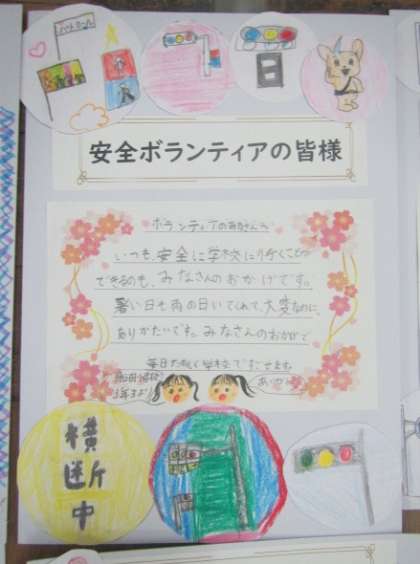 日
安全ボランティアの皆様
ボランティアのみなさんへ
いつも、安全に学校に行くことの
できるのも、みなさんのおかげです。
暑い日も雨の日いてくれて、大変なのに、
ありがたいです。みなさんのおかげで
毎日楽しく学校ですごせます
横
断
中